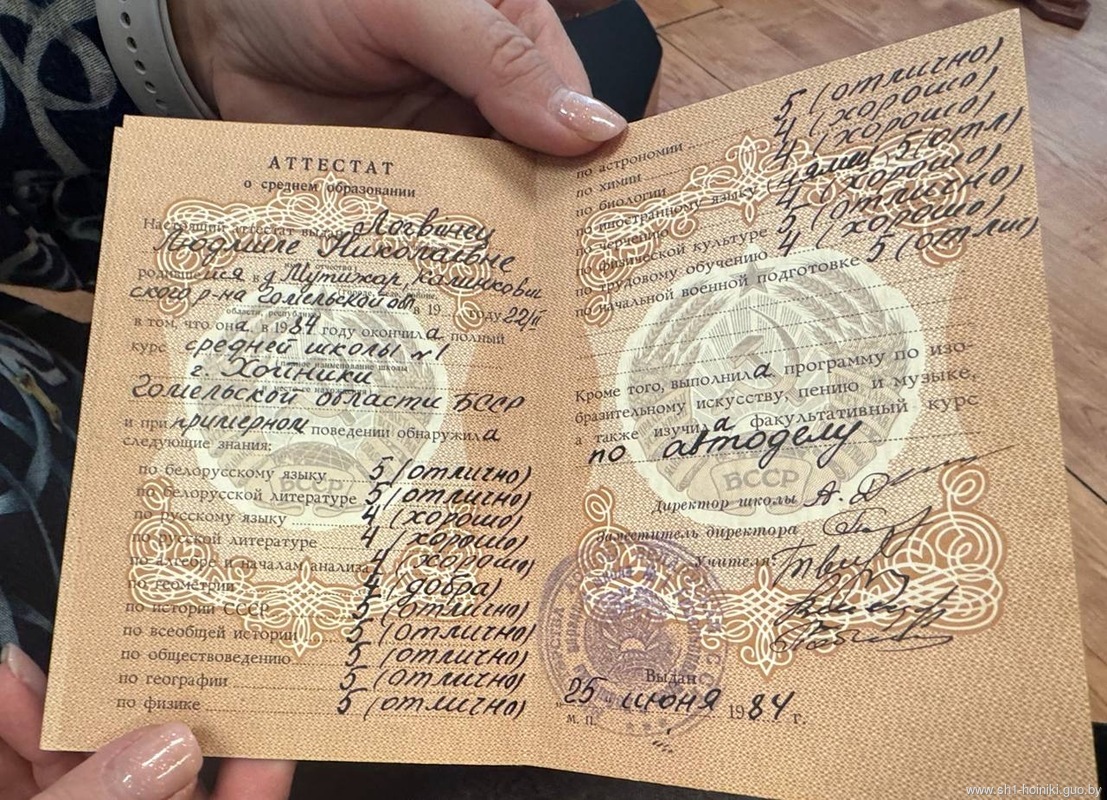 АТТЕСТАТ
о среднем образовании
Настоящий аттестат выдан Логвинец
Людмиле Николаевне
родившейся в д. Мутижар, Калинкович
ского р-на Гомельской обл.
области, республики)
в 19 году 22/II
в том, что она в 1984 году окончила полный
курс средней школы №1
г. Хойники
Гомельской области БССР
и при примерном поведении обнаружила
следующие знания:
по белорусскому языку 5 (отлично)
по белорусской литературе 5 (отлично)
по русскому языку 4 (хорошо)
по русской литературе 4 (хорошо)
по алгебре и началам анализа 4 (хорошо)
по геометрии 4 (добра)
по истории СССР 5 (отлично)
по всеобщей истории 5 (отлично)
по обществоведению 5 (отлично)
по географии 5 (отлично)
по физике 5 (отлично)
по астрономии 5 (отлично)
по химии 4 (хорошо)
по биологии 4 (хорошо)
по иностранному языку 5 (отл)
по черчению 4 (хорошо)
по физической культуре 5 (отлично)
по трудовому обучению 4 (хорошо)
по начальной военной подготовке 5 (отлич)
Кроме того, выполнила программу по изо-
бразительному искусству, пению и музыке,
а также изучила факультативный курс
по автоделу
БССР
Директор школы
Заместитель директора
Учителя:
Выдан
"25 июня 1984 г.
М. П.
www.sh1-hoiniki.guo.by